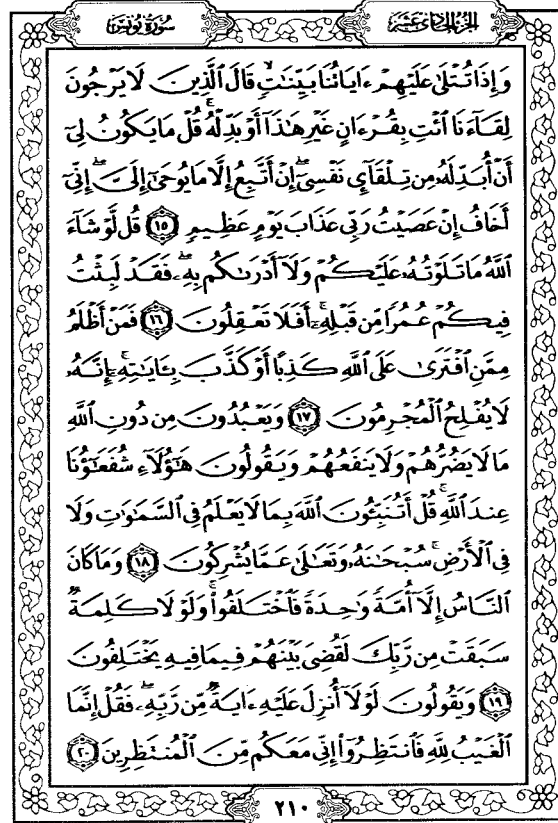 سُورَةُ يُونُس
الجُزْءُ الحَادِي عَشَرَ
وَإِذَا تُتْلَىٰ عَلَيْهِمْ ءَايَاتُنَا بَيِّنَٰتٍۙ قَالَ ٱلَّذِينَ لَا يَرْجُونَ
لِقَآءَنَا ٱئْتِ بِقُرْءَانٍ غَيْرِ هَٰذَآ أَوْ بَدِّلْهُۚ قُلْ مَا يَكُونُ لِىٓ
أَنْ أُبَدِّلَهُۥ مِن تِلْقَآئِ نَفْسِىٓۖ إِنْ أَتَّبِعُ إِلَّا مَا يُوحَىٰٓ إِلَىَّۖ إِنِّىٓ
أَخَافُ إِنْ عَصَيْتُ رَبِّى عَذَابَ يَوْمٍ عَظِيمٍ ١٥ قُل لَّوْ شَآءَ
ٱللَّهُ مَا تَلَوْتُهُۥ عَلَيْكُمْ وَلَآ أَدْرَىٰكُم بِهِۦۖ فَقَدْ لَبِثْتُ
فِيكُمْ عُمُرًا مِّن قَبْلِهِۦٓۚ أَفَلَا تَعْقِلُونَ ١٦ فَمَنْ أَظْلَمُ
مِمَّنِ ٱفْتَرَىٰ عَلَى ٱللَّهِ كَذِبًا أَوْ كَذَّبَ بِـَٔايَٰتِهِۦٓۚ إِنَّهُۥ
لَا يُفْلِحُ ٱلْمُجْرِمُونَ ١٧ وَيَعْبُدُونَ مِن دُونِ ٱللَّهِ
مَا لَا يَضُرُّهُمْ وَلَا يَنفَعُهُمْ وَيَقُولُونَ هَٰٓؤُلَآءِ شُفَعَٰٓؤُنَا
عِندَ ٱللَّهِۚ قُلْ أَتُنَبِّـُٔونَ ٱللَّهَ بِمَا لَا يَعْلَمُ فِى ٱلسَّمَٰوَٰتِ وَلَا
فِى ٱلْأَرْضِۚ سُبْحَٰنَهُۥ وَتَعَٰلَىٰ عَمَّا يُشْرِكُونَ ١٨ وَمَا كَانَ
ٱلنَّاسُ إِلَّآ أُمَّةً وَٰحِدَةً فَٱخْتَلَفُوا۟ۚ وَلَوْلَا كَلِمَةٌ
سَبَقَتْ مِن رَّبِّكَ لَقُضِىَ بَيْنَهُمْ فِيمَا فِيهِ يَخْتَلِفُونَ
١٩ وَيَقُولُونَ لَوْلَآ أُنزِلَ عَلَيْهِ ءَايَةٌ مِّن رَّبِّهِۦۖ فَقُلْ إِنَّمَا
ٱلْغَيْبُ لِلَّهِ فَٱنتَظِرُوٓا۟ إِنِّى مَعَكُم مِّنَ ٱلْمُنتَظِرِينَ ٢٠
٢١٠